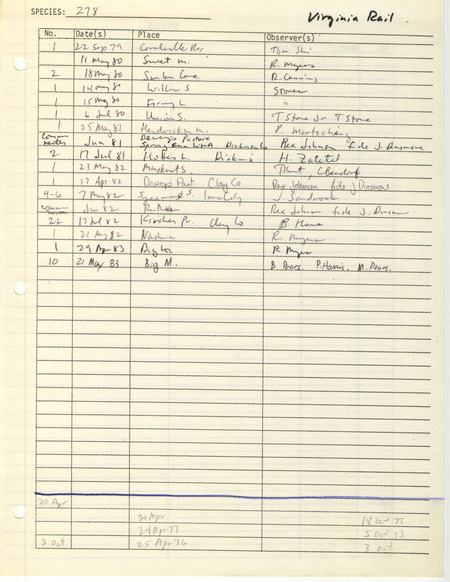 SPECIES: 278
Virginia Rail
No. Date(s) Place Observer(s)
1 22 Sep 79 Coralville Res
11 May 80 Sweet M. R. Myers
2 18 May 80 R. Cummins
1 14 May 80 Willow S Stone
1 15 May 80 L "
1 6 Jul 80 Union S. T Stone Jr T Stone
1 25 May 81
Jun 81 Deweys Pasture Spring Run WMA Dickinson Co Rex Johnson fide J. Dinsmore
2 17 Jul 81 L Dickins H. Zaletel
1 23 May 82 Muskrat S Bendorf
1 17 Apr 82 Deweys Past Clay Co Rex Johnson fide J Dinsmore
4-6 7 May 82 Sycamore S Iowa City J. Sandrock
Jun 82 Rex Johnson fide J. Dinsmore
2+ 17 Jul 82 Kirchner Pr. Clay Co B Howe
1 21 Aug 82 Nashua R. Myers
1 29 Apr 83 Big M R Myers
10 21 May 83 Big M. B. Poors, P. Harris, M. Poors.
20 Apr
20 Apr 18 Oct 73
24 Apr 77 5 Oct 73
3 Oct 25 Apr 76 3 Oct